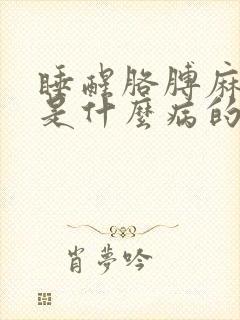 睡醒胳膊麻
是什麼病的
肖夢吟